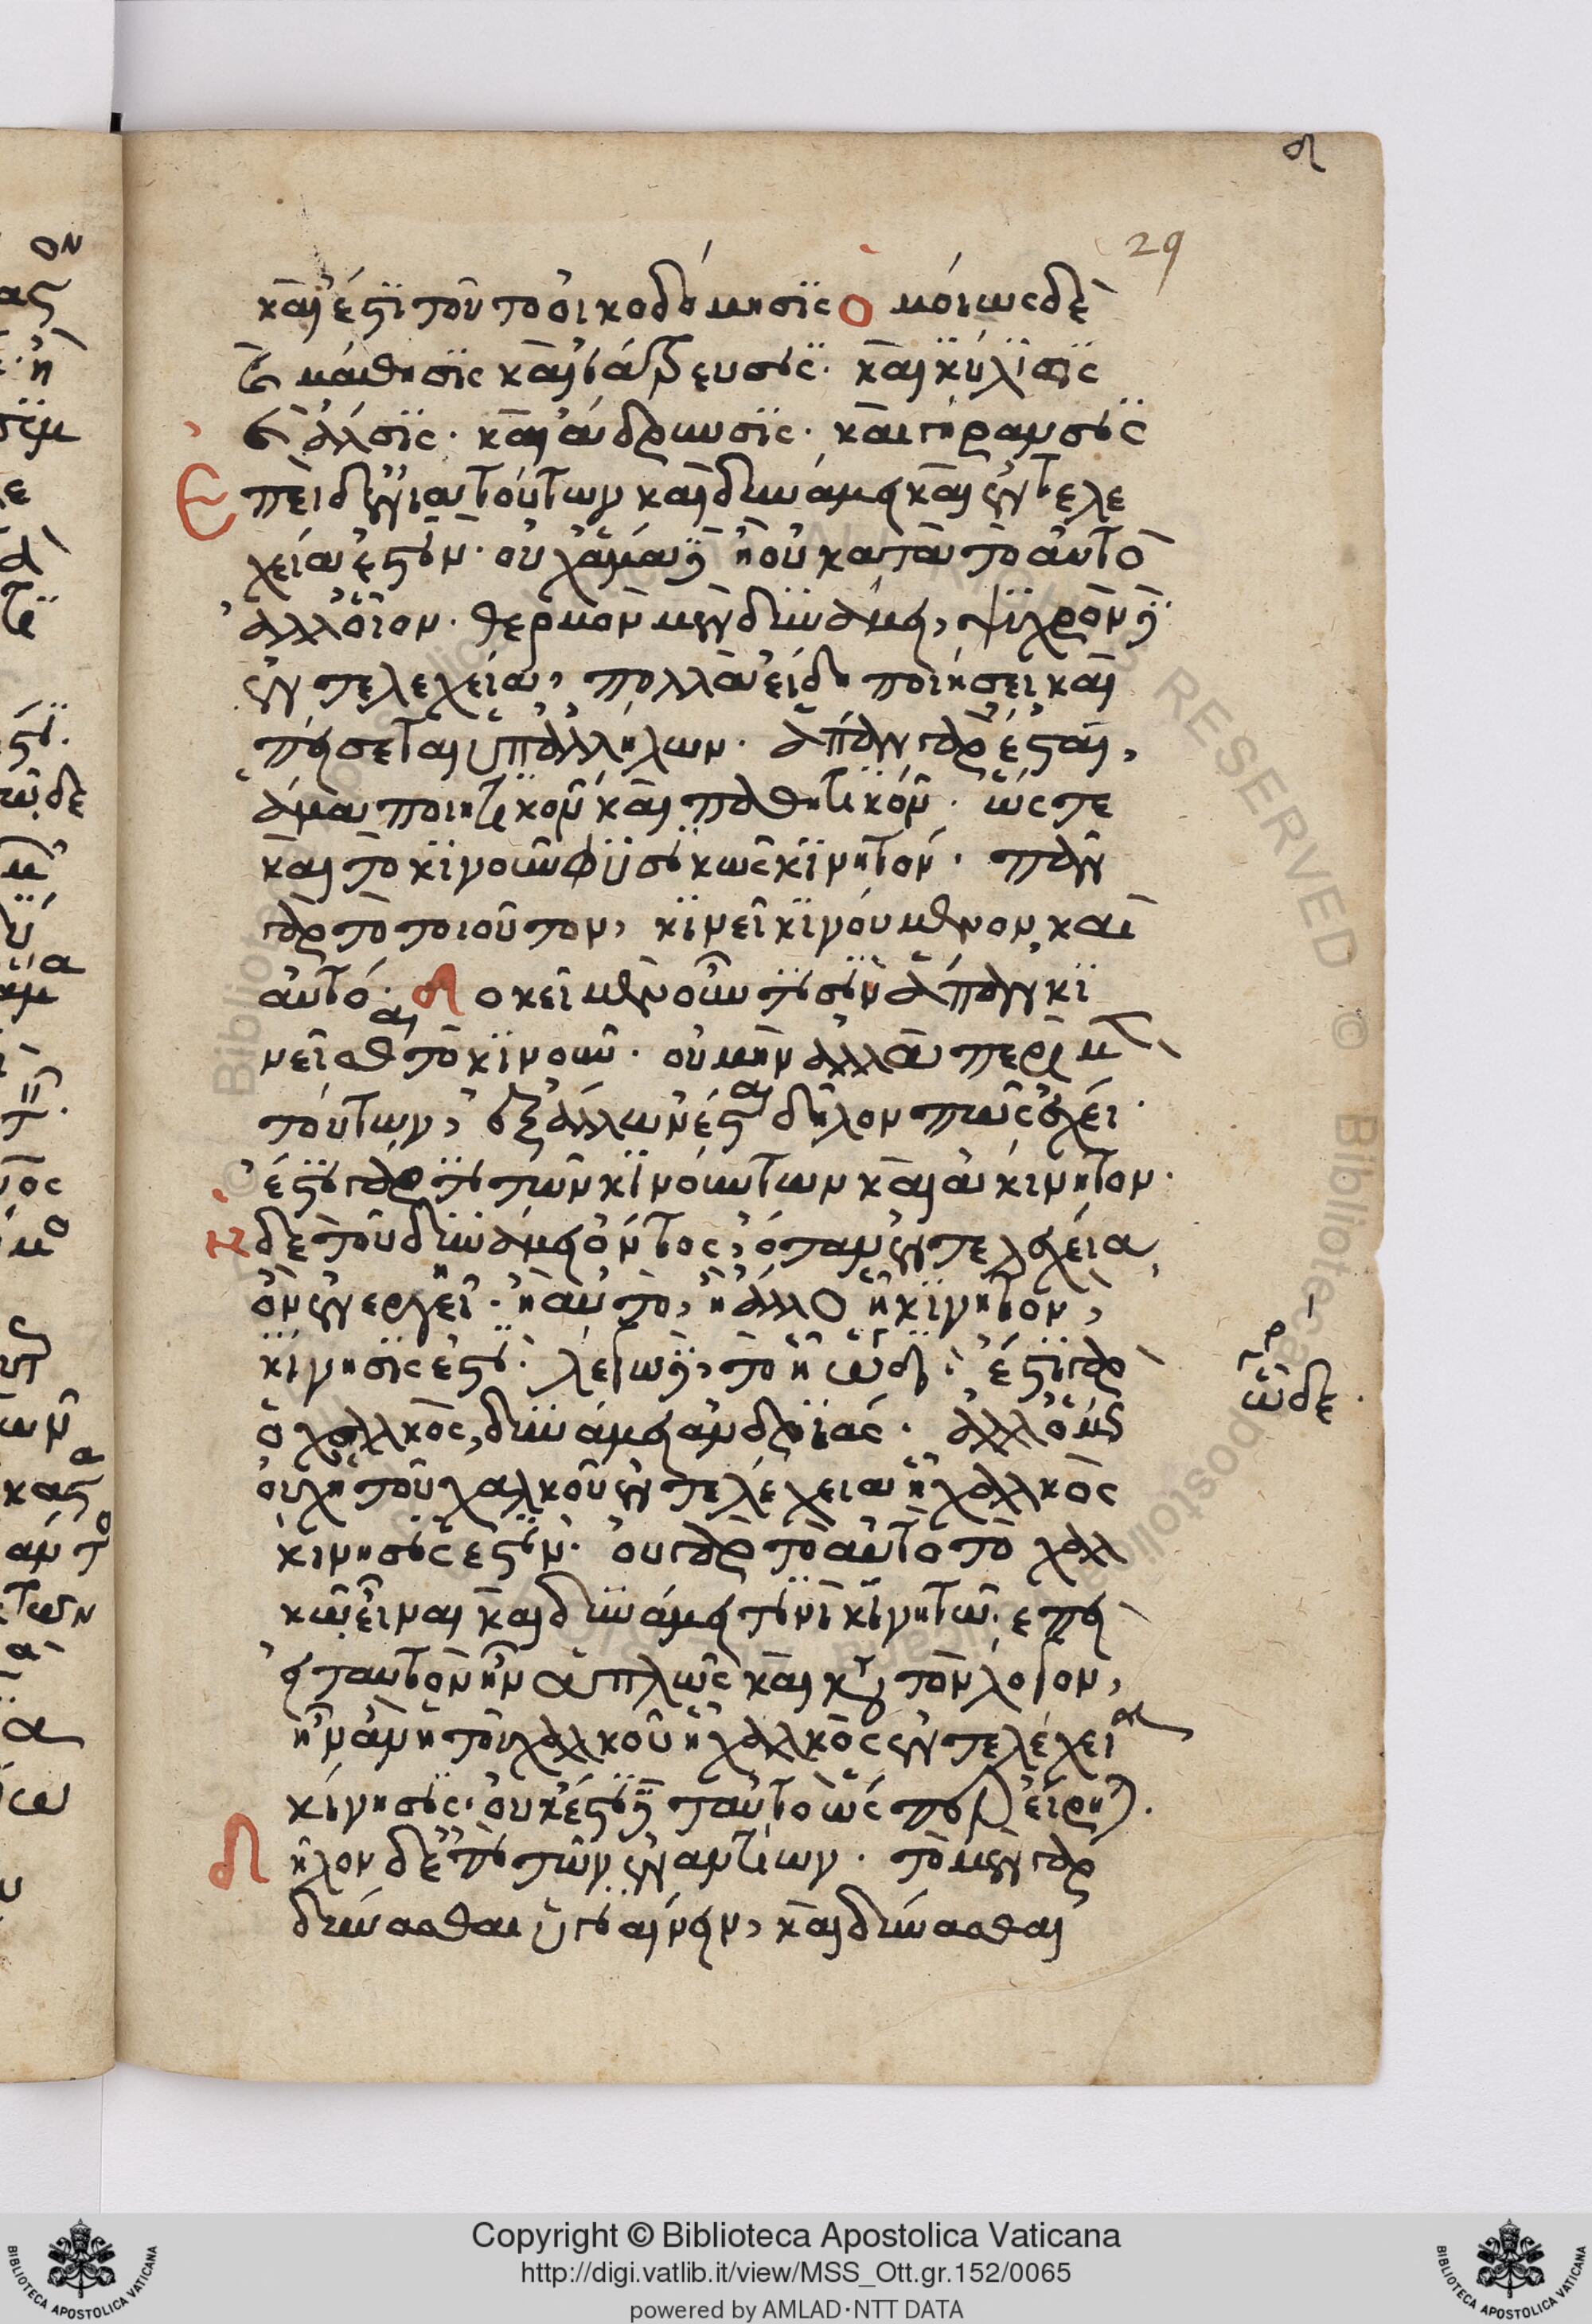 δ
29
καὶ ἔστι τοῦτο οἰκοδόμησις ὁμοίως δὲ
καὶ μάθησις καὶ ἰάτρευσις. καὶ κύλισις
καὶ ἅλσις. καὶ ἅδρυνσις. καὶ γήρανσις
Ἐπεὶ δ' ἔνια ταὐτὰ καὶ δυνάμει καὶ ἐντελε
χεία ἐστὶν. οὐχ ἅμα δὲ ἢ οὐ κατὰ τὸ αὐτὸ
ἀλλ' οἷον. θερμὸν μὲν δυνάμει, ψυχρὸν δὲ
ἐντελεχεία, πολλὰ εἴδη ποιήσει καὶ
πείσεται ὑπ' ἀλλήλων. ἅπαν γὰρ ἔσται,
ἅμα ποιητικὸν καὶ παθητικόν. ὥστε
καὶ τὸ κινοῦν φυσικῶς κινητόν. πᾶν
γὰρ τὸ τοιοῦτον, κινεῖ κινούμενον καὶ
αὐτό. δοκεῖ μὲν οὖν τισὶν ἅπαν κι
νεῖσθαι τὸ κινοῦν. οὐ μὴν ἀλλὰ περὶ μὲν
τούτων, ἐξ ἄλλων ἔσται δῆλον πῶς ἔχει.
ἔστι γάρ τι τῶν κινούντων καὶ ἀκίνητον.
Ἡ δὲ τοῦ δυνάμει ὄντος, ὅταν ἐντελεχεία
ὂν ἐνεργεῖ. ἢ αὐτὸ, ἢ ἄλλο ᾗ κινητὸν,
κίνησις ἐστι. λέγω δὲ, τὸ ᾗ ὡδί. ἔστι γὰρ
ὁ χαλκὸς, δυνάμει ἀνδριάς. ἀλλ' ὅμως
οὐχ ἡ τοῦ χαλκοῦ ἐντελέχεια ᾗ χαλκὸς
κίνησις ἐστιν. οὐ γὰρ τὸ αὐτὸ τὸ χαλ
κῷ εἶναι καὶ δυνάμει τινὶ κινητῷ. ἐπεὶ
εἰ ταυτὸν ἦν ἁπλῶς καὶ κατὰ τὸν λόγον,
ἦν ἂν ἡ τοῦ χαλκοῦ ᾗ χαλκὸς ἐντελέχεια
κίνησις. οὐκ ἔστι δὲ ταὐτὸ ὥσπερ εἴρηται.
δῆλον δ' ἐπὶ τῶν ἐναντίων. τὸ μὲν γὰρ
δύνασθαι ὑγιαίνειν, καὶ δύνασθαι
ὧδε.